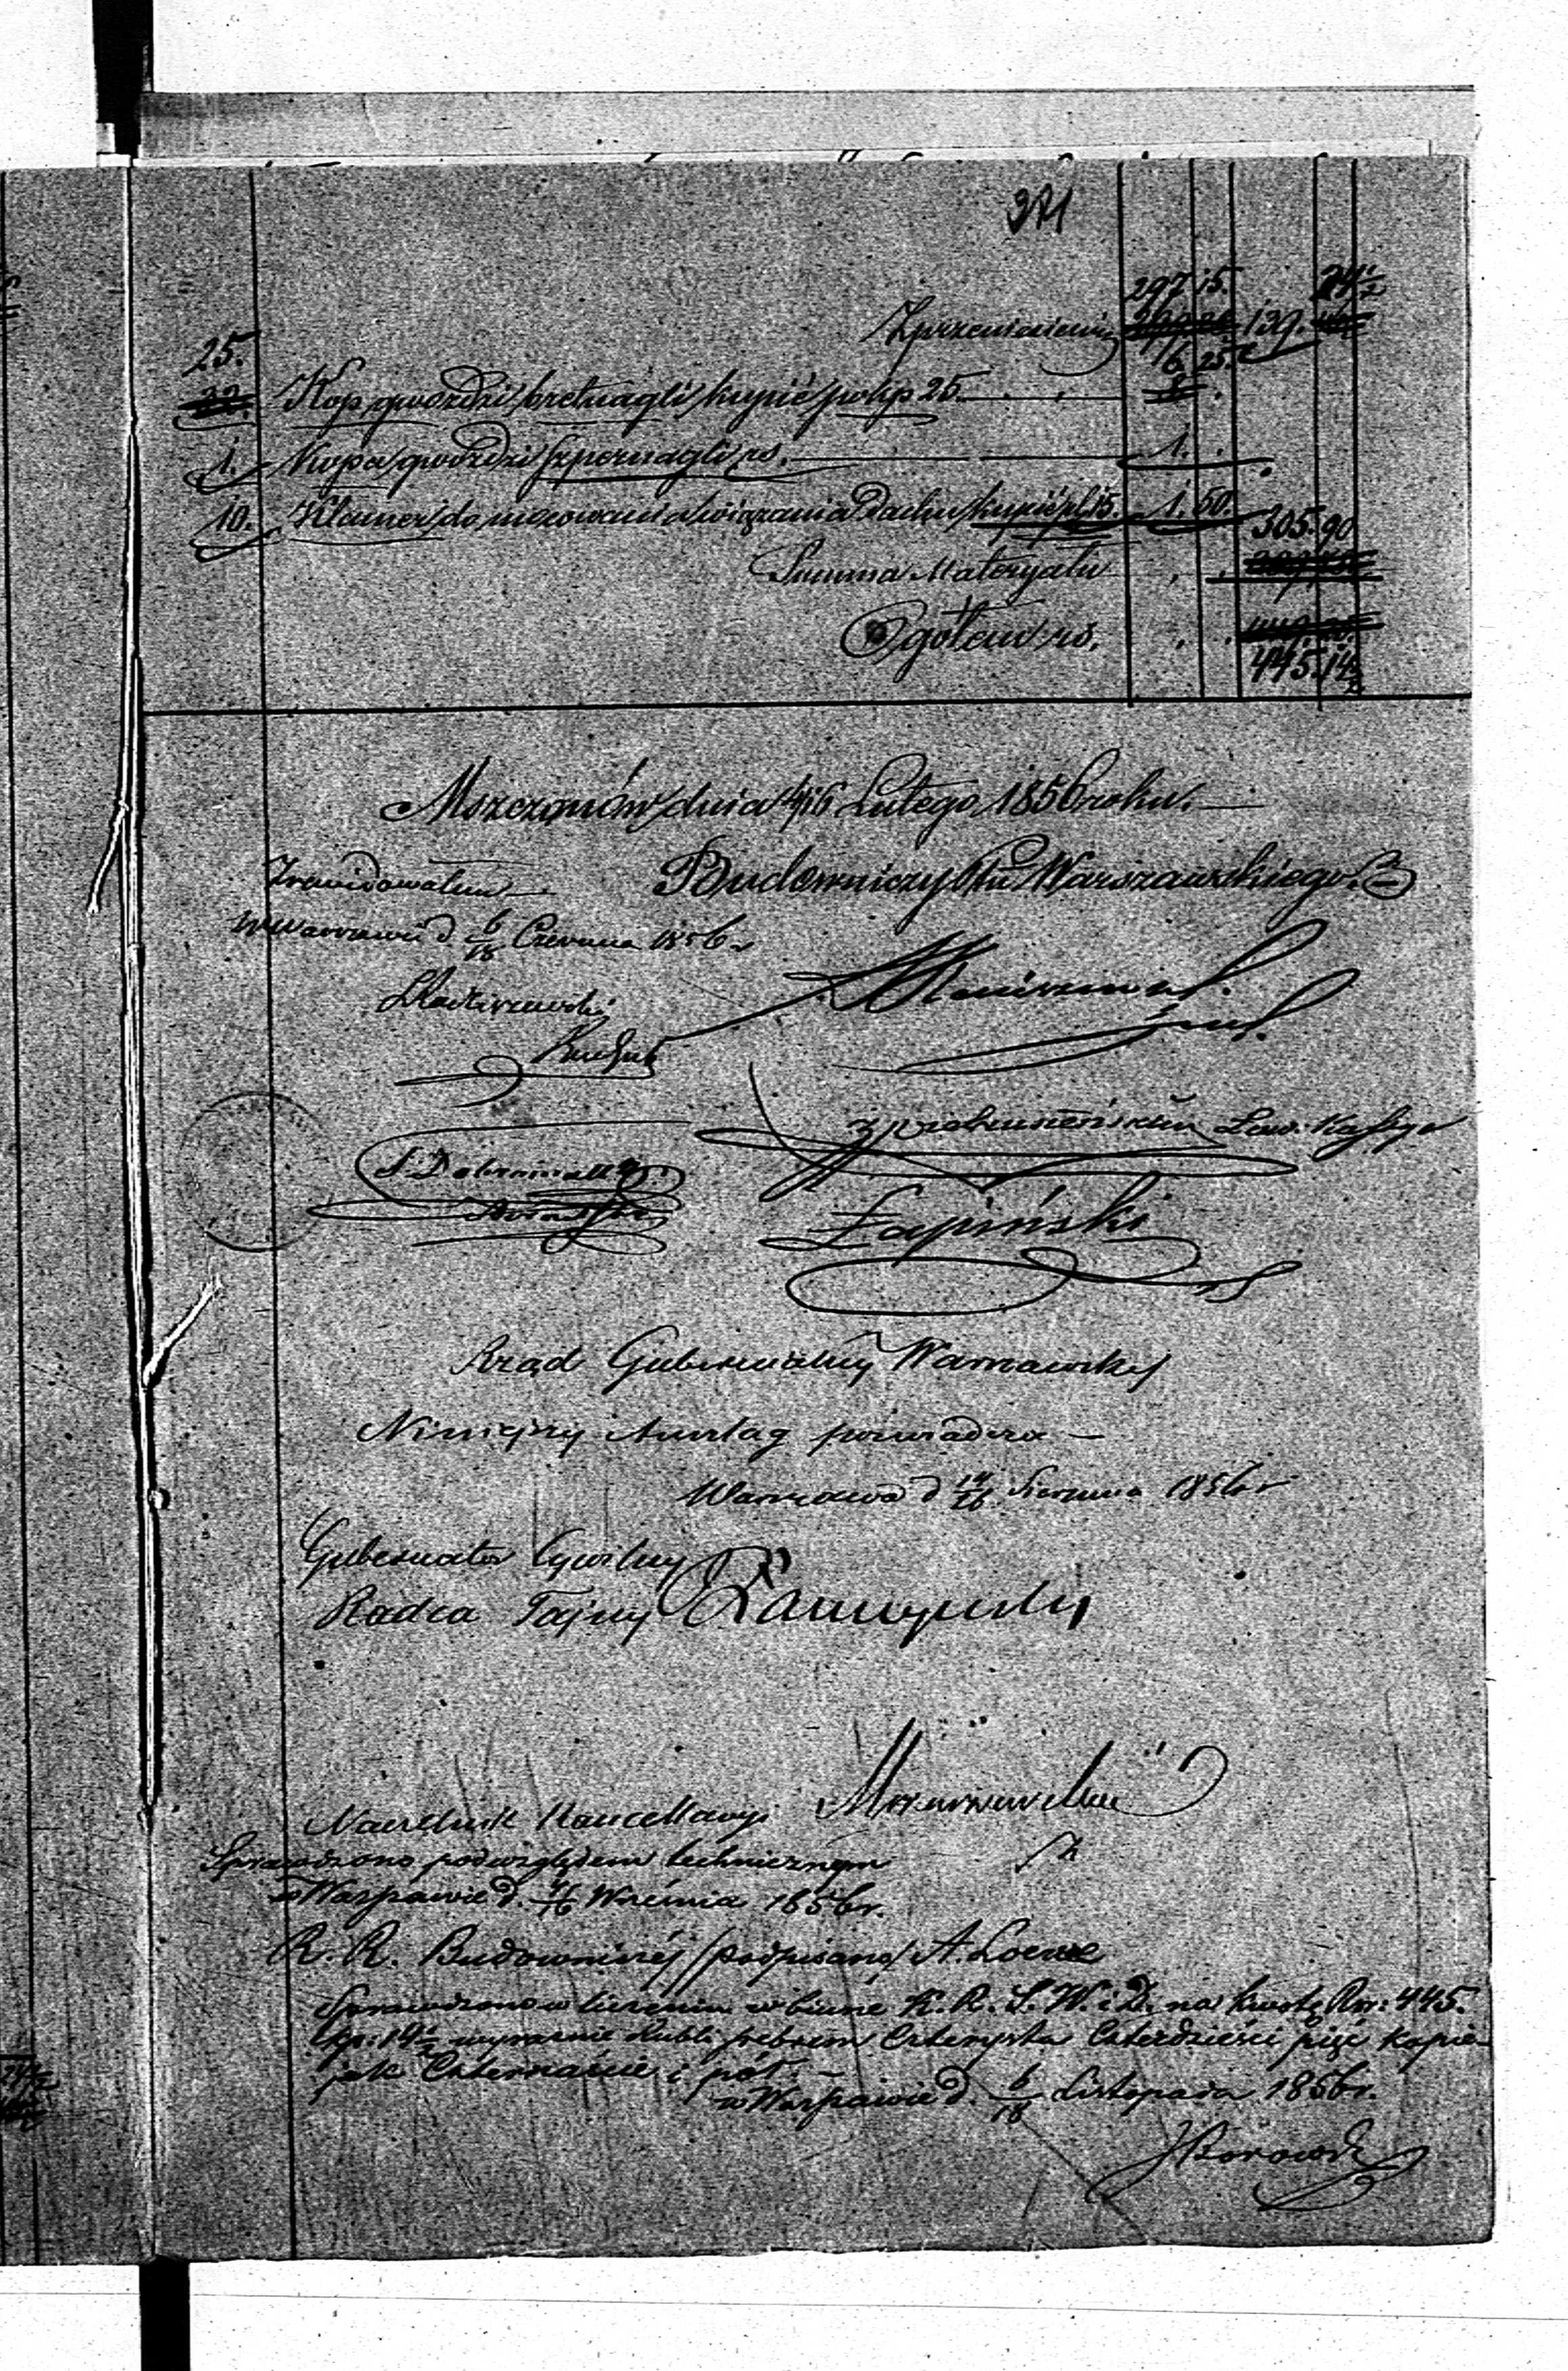 371
297 15. 24 1/2
Z przeniesienia 139.
25. 6 25.
Kop gwoździ bretnagli kupić po kp 25.
1. Kopa gwoździ szpernagli rs. 1.
10. Klamer do mocowania wiązania dachu kupić pl. 15. 1. 50.
305. 90
Summa Materyału
Ogółem rs.
445. 14 1/2
Mszczonów dnia 4/16 Lutego 1856 roku.
Budowniczy Ptu Warszawskiego.
Zrewidowałem
w Warszawie d. 6/18 Czerwca 1856 r
Łapiński
Rząd Gubernialny Warszawski
Niniejszy Anszlag poświadcza
Warszawa d 14/26 Sierpnia 1856 r
Gubernator Cywilny
Radca Tajny
Naczelnik Kancellaryi
Sprawdzono pod względem technicznym
w Warszawie d. 4/16 Września 1856 r.
R. R. Budowniczéj /podpisano/ A. Loewe
Sprawdzono w liczeniu w biurze K. R. S. W. i D. na kwotę Rsr: 445.
kp: 14 1/2 wyraźnie Rubli srebrem Czterysta Czterdzieści pięć kopie-
jek Czternaście i pół.
w Warszawie d. 6/18 Listopada 1856 r.